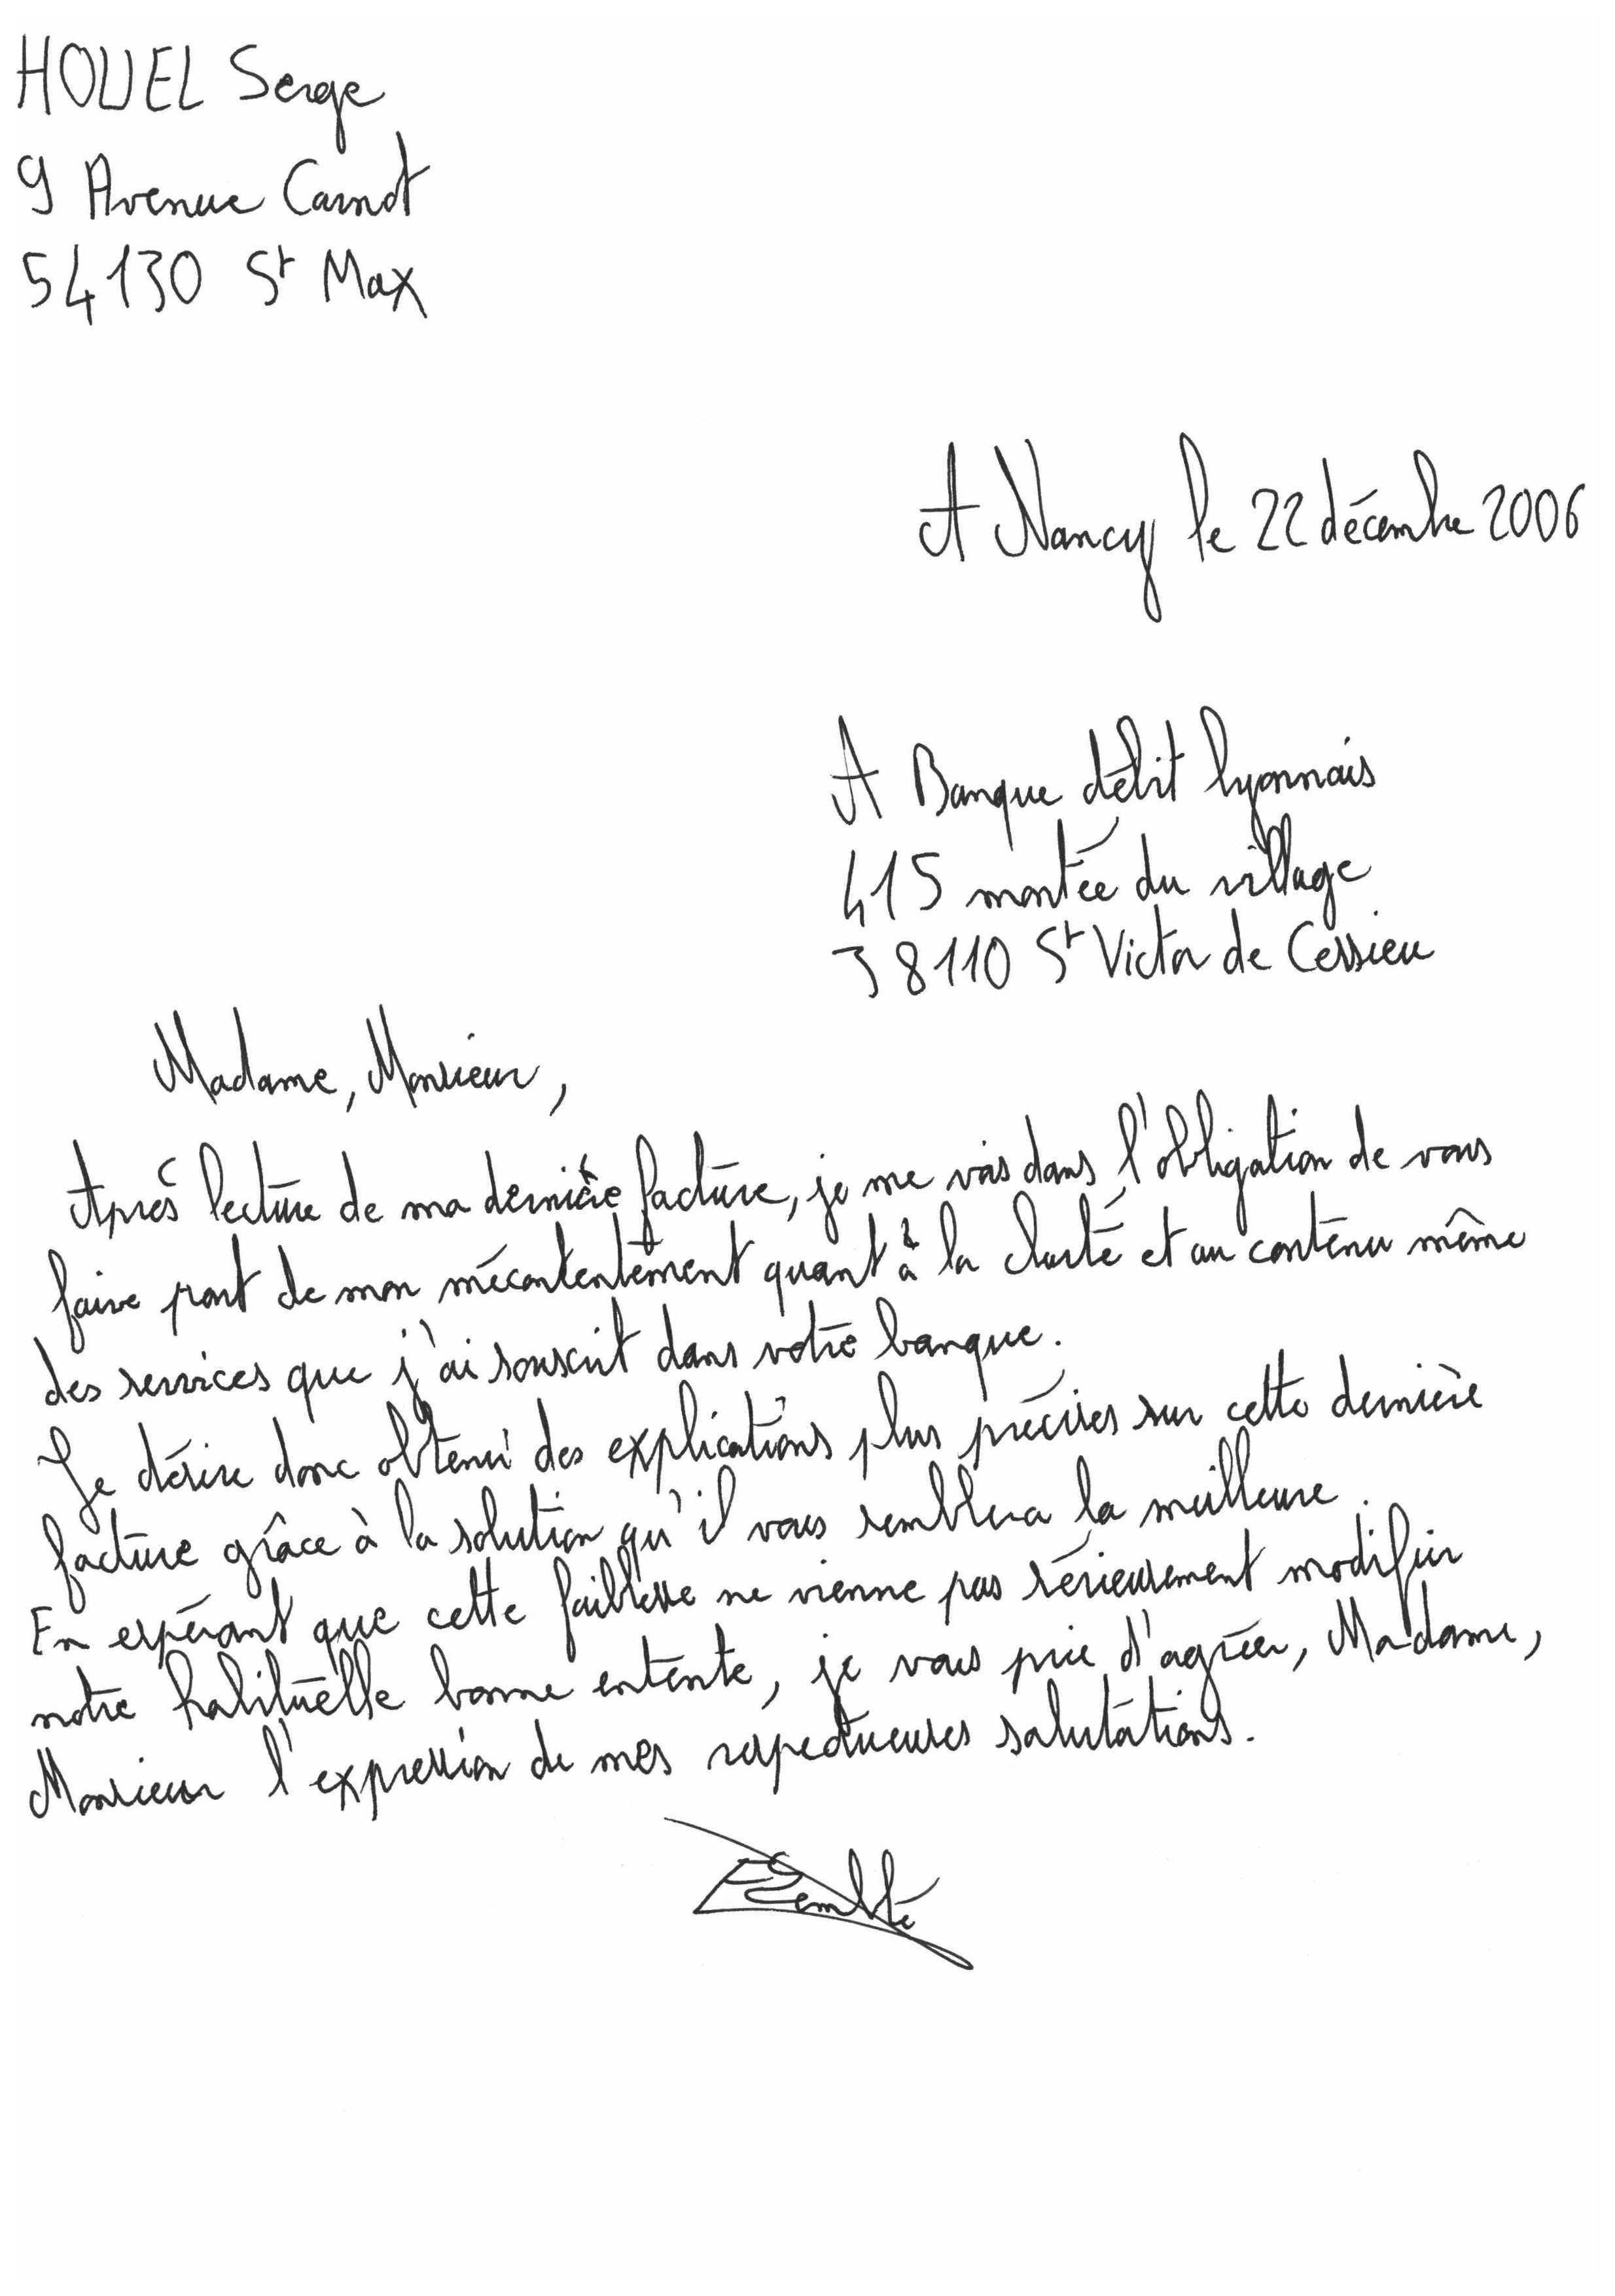 HOUEL Serge
9 Avenue Carnot
54130 St Max
A Nancy le 22 décembre 2006
A Banque débit lyonnais
415 montée du village
38110 St Victor de Cessieu
Madame, Monsieur,
Après lecture de ma dernière facture, je me vois dans l'obligation de vous
faire part de mon mécontentement quant à la clarté et au contenu même
des services que j'ai souscrit dans votre banque.
Je désire donc obtenir des explications plus précises sur cette dernière
facture grâce à la solution qu'il vous semblera la meilleure.
En espérant que cette faiblesse ne vienne pas sérieusement modifier
notre habituelle bonne entente, je vous prie d'agréer, Madame,
Monsieur l'expression de mes respectueuses salutations.